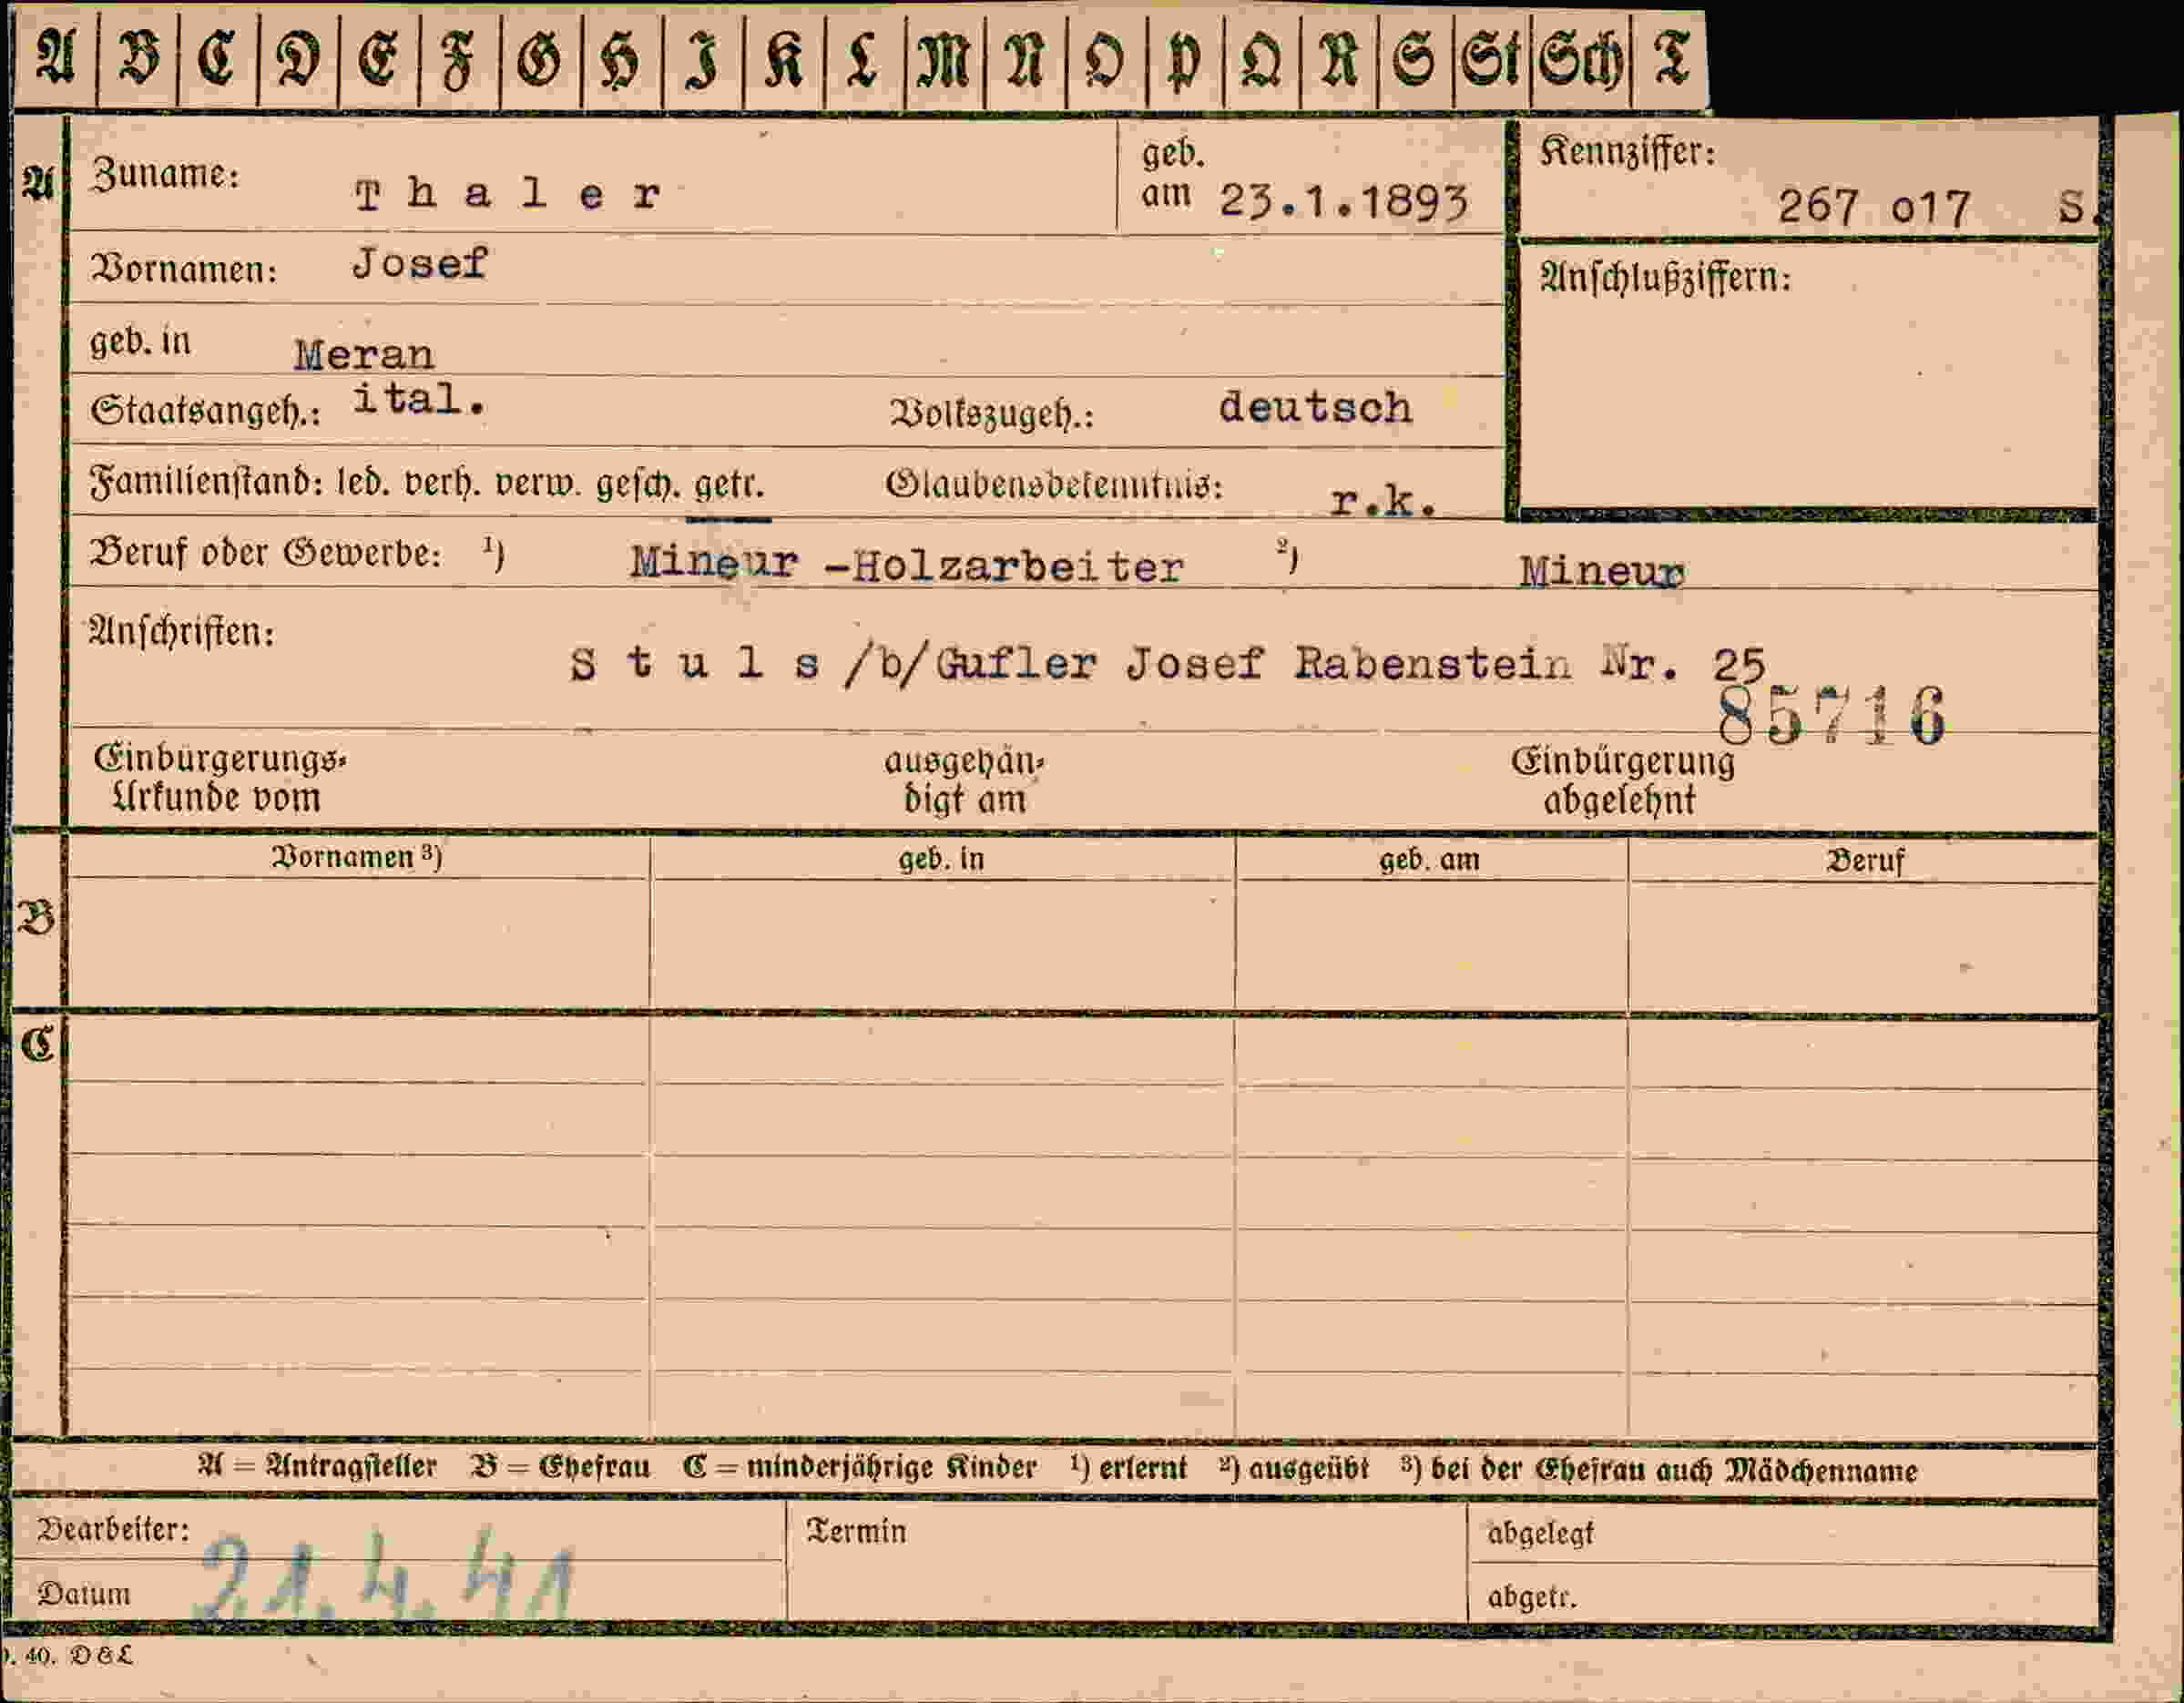 A B C D E F G H I K L M N O P Q R S St Sch T
A Zuname: Thaler geb. am 23.1.1893 Kennziffer: 267 017 S.
Vornamen: Josef Anschlußziffern:
geb. in Meran
Staatsangeh.: ital. Volkszugeh.: deutsch
Familienstand: led. verh. verw. gesch. getr. Glaubensbekenntnis: r.k.
Beruf oder Gewerbe: 1) Mineur -Holzarbeiter 2) Mineur
Anschriften:
Stuls /b/Gufler Josef Rabenstein Nr. 25
85716
Einbürgerungs- ausgehän- Einbürgerung
Urkunde vom digt am abgelehnt
Vornamen 3) geb. in geb. am Beruf
B
C
A = Antragsteller B = Ehefrau C = minderjährige Kinder 1) erlernt 2) ausgeübt 3) bei der Ehefrau auch Mädchenname
Bearbeiter: Termin abgelegt
Datum 21.4.41 abgetr.
40. D & L